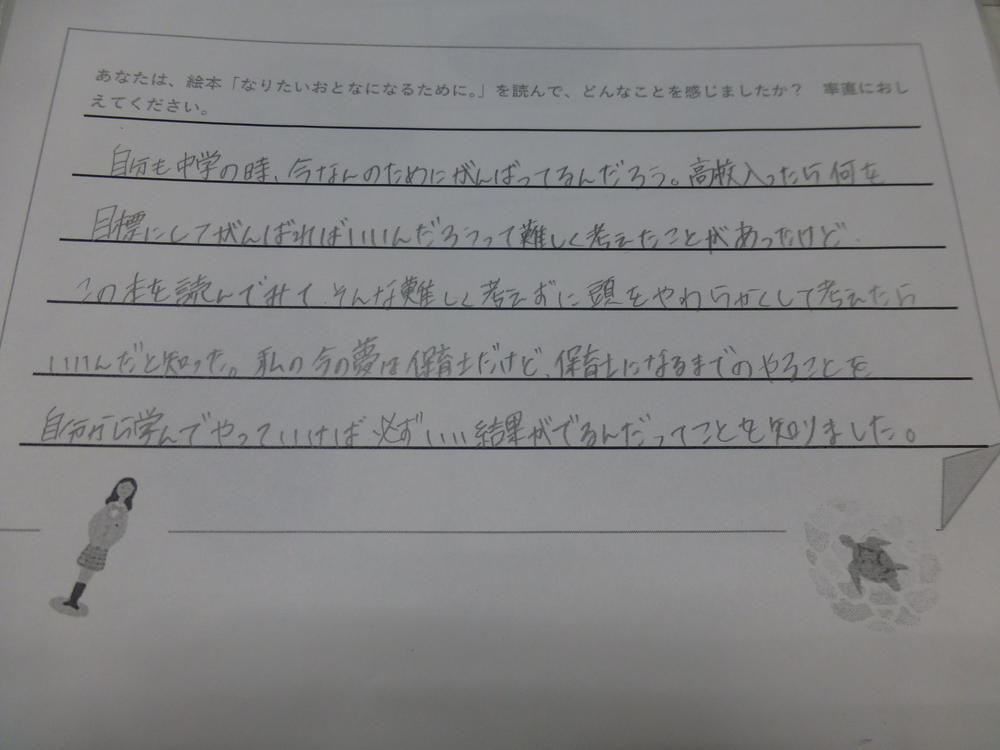 あなたは、絵本「なりたいおとなになるために。」を読んで、どんなことを感じましたか？　率直におし
えてください。
自分も中学の時、今なんのためにがんばってるんだろう。高校入ったら何を
目標にしてがんばればいいんだろうって難しく考えたことがあったけど、
この本を読んでみて、そんな難しく考えずに頭をやわらかくして考えたら
いいんだと知った。私の今の夢は保育士だけど、保育士になるまでのやることを
自分から学んでやっていけば必ずいい結果がでるんだってことを知りました。